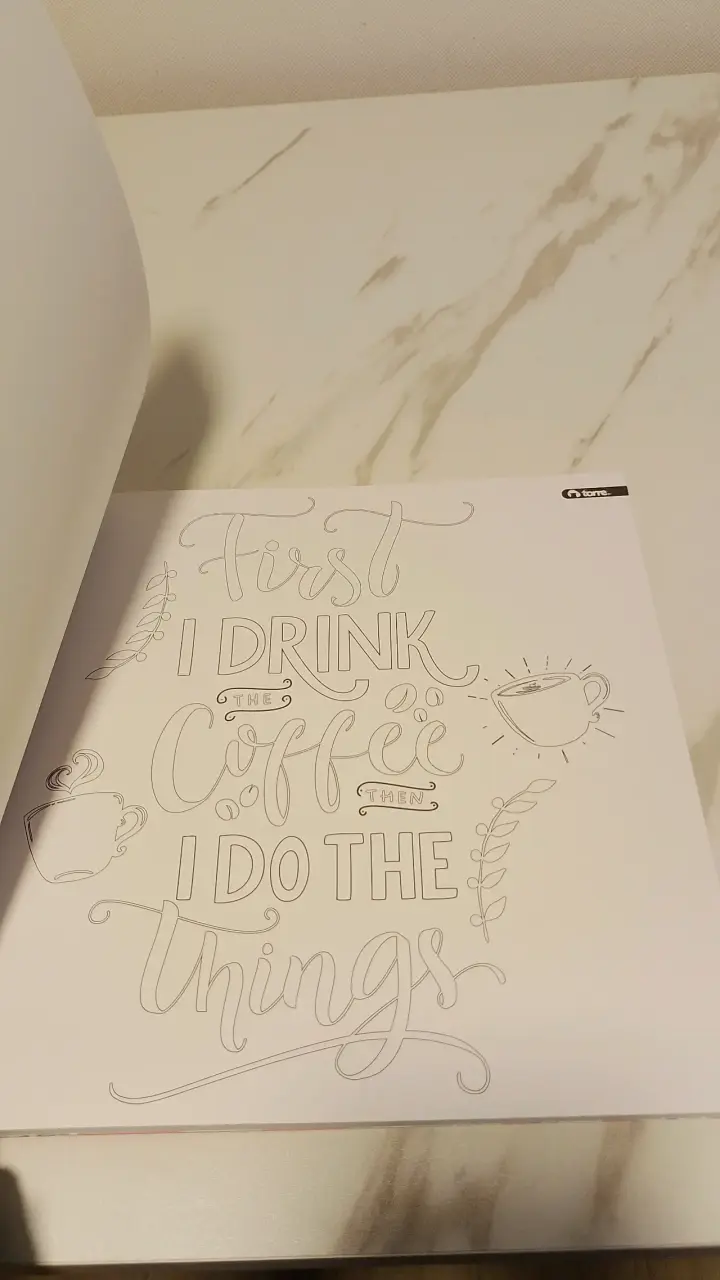 torre
First
I DRINK
THE
Coffee
THEN
I DO THE
things